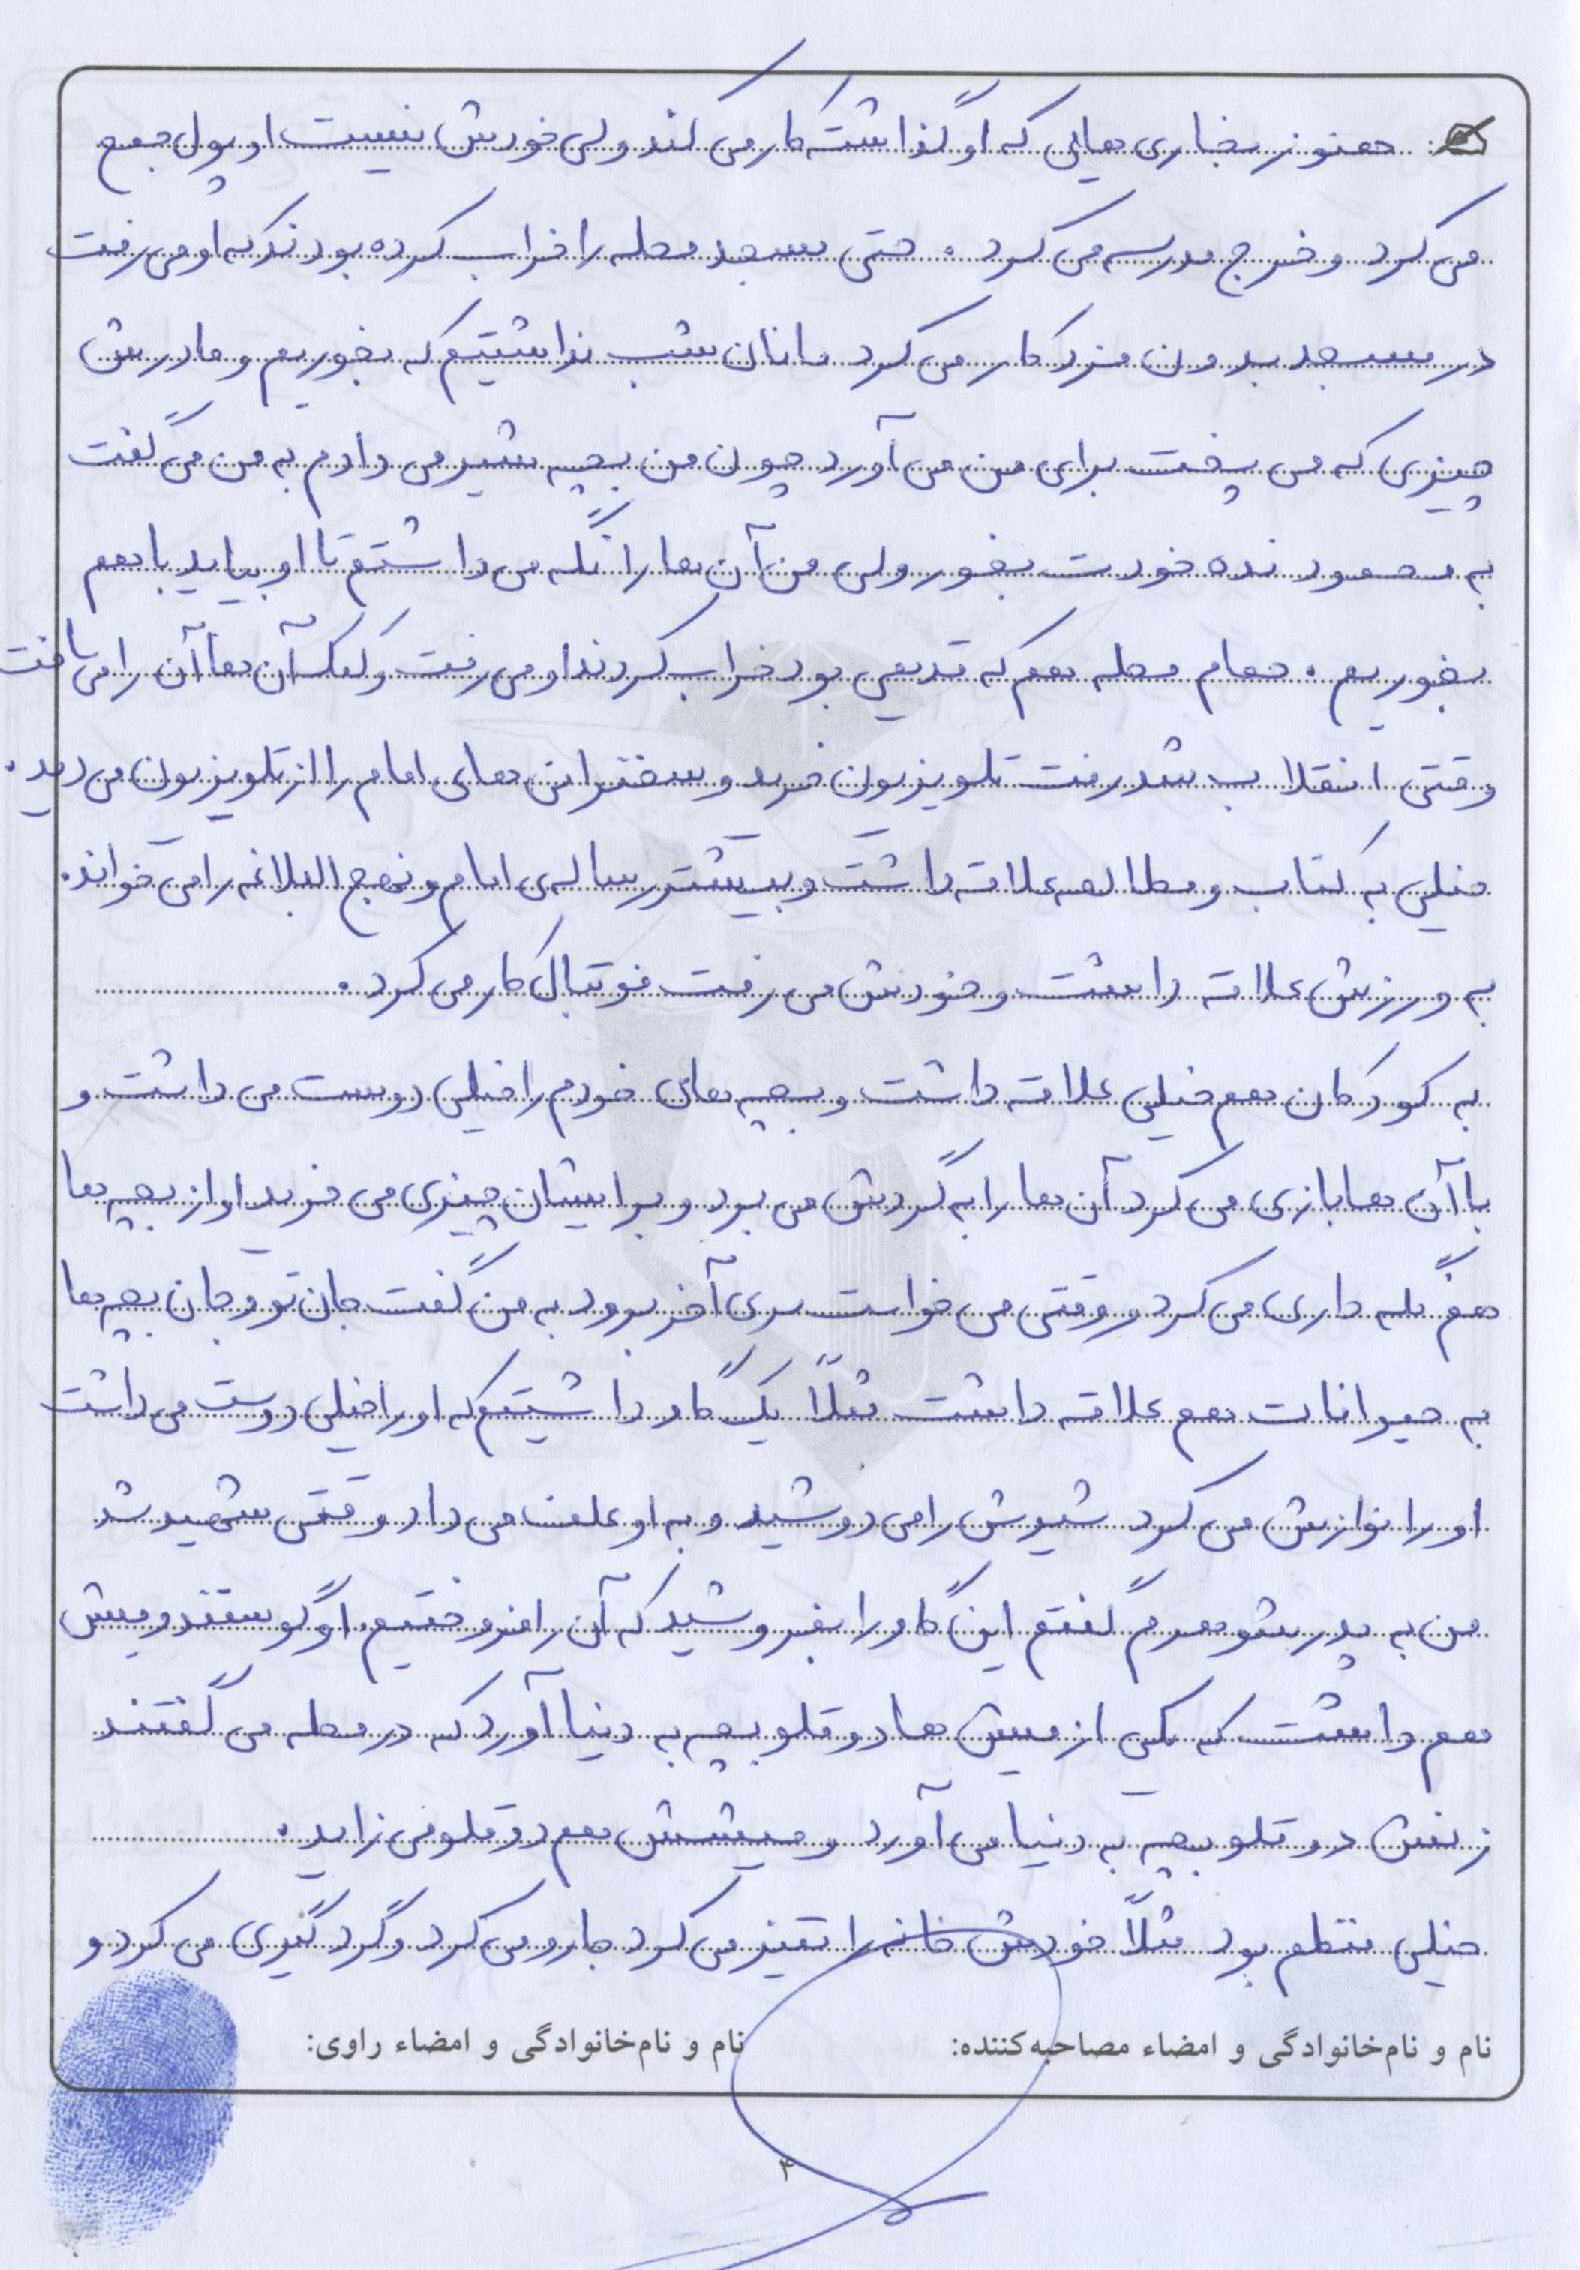 هنوز بخاری هایی که او گذاشته کار می کند ولی خودش نیست او پول جمع
می کرد و خرج مدرسه می کرد . حتی مسجد محله را خراب کرده بودند که او می رفت
در مسجد بدون مزد کار می کرد ما نان شب نداشتیم که بخوریم و مادرش
چیزی که می پخت برای من می آورد چون من بچه شیر می دادم به من می گفت
به محمود نده خودت بخور ولی من آن ها را نگه می داشتم تا او بیاید با هم
بخوریم . حمام محله هم که قدیمی بود خراب کردند او می رفت و کمک آن ها آن را می ساخت
وقتی انقلاب شد رفت تلویزیون خرید و سخنرانی های امام را از تلویزیون می دید .
خیلی به کتاب و مطالعه علاقه داشت و بیشتر رساله ی امام و نهج البلاغه را می خواند .
به ورزش علاقه داشت و خودش می رفت فوتبال کار می کرد .
به کودکان هم خیلی علاقه داشت و بچه های خودم را خیلی دوست می داشت و
با آن ها بازی می کرد آن ها را به گردش می برد و برایشان چیزی می خرید او از بچه ها
هم نگه داری می کرد و وقتی می خواست سری آخر برود به من گفت جان تو و جان بچه ها
به حیوانات هم علاقه داشت مثلاً یک گاو داشتیم که او را خیلی دوست می داشت
او را نوازش می کرد شیرش را می دوشید و به او علف می داد وقتی شهید شد
من به پدر شوهرم گفتم این گاو را بفروشید که آن را فروختیم. او گوسفند و میش
هم داشت که یکی از میش ها دو قلو بچه به دنیا آورد که در محله می گفتند
زنش دو قلو بچه به دنیا می آورد و میشش هم دو قلو می زاید .
خیلی منظم بود مثلاً خودش خانه را تمیز می کرد جارو می کرد و گرد گیری می کرد و
نام و نام‌خانوادگی و امضاء مصاحبه‌کننده: نام و نام‌خانوادگی و امضاء راوی:
۴